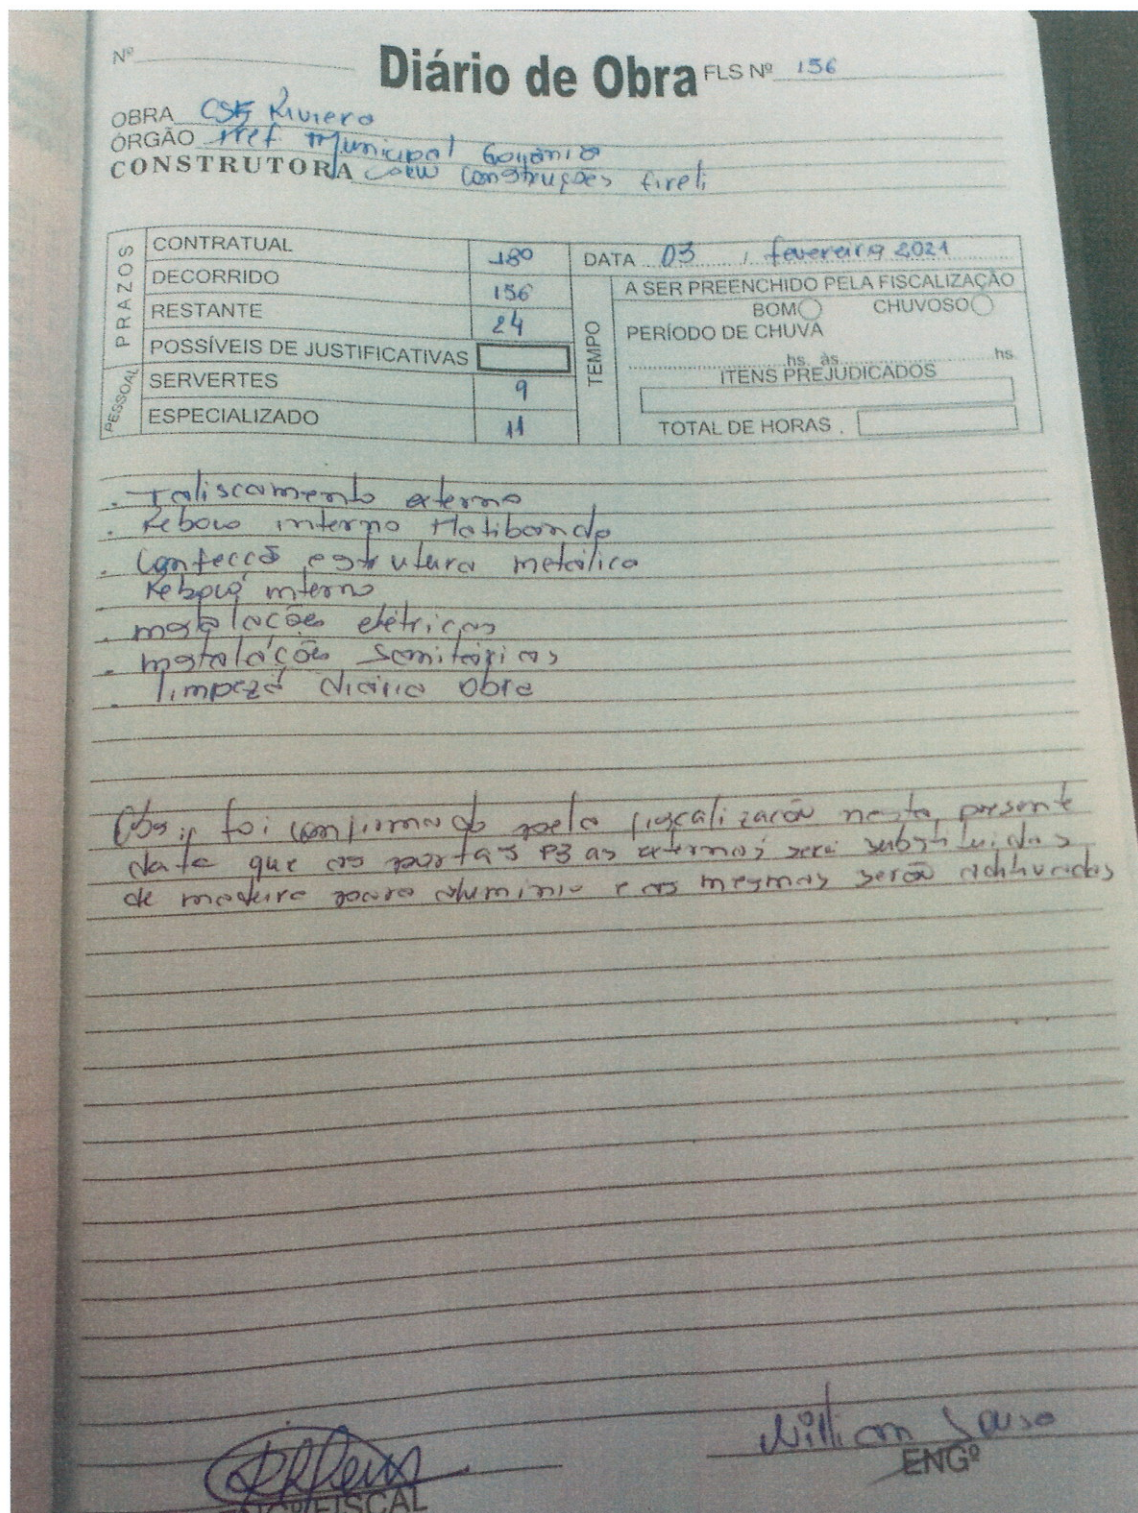 Nº
Diário de Obra FLS Nº 156
OBRA CSF Riviera
ÓRGÃO Pref Municipal Goiânia
CONSTRUTORA Construções Eireli
PRAZOS
CONTRATUAL 180
DECORRIDO 156
RESTANTE 24
POSSÍVEIS DE JUSTIFICATIVAS
PESSOAL
SERVERTES 9
ESPECIALIZADO 11
DATA 03 / fevereiro 2021
TEMPO
A SER PREENCHIDO PELA FISCALIZAÇÃO
BOM CHUVOSO
PERÍODO DE CHUVA
hs. às hs
ITENS PREJUDICADOS
TOTAL DE HORAS .
. Taliscamento externo
. Reboco interno Platibanda
. Confecção estrutura metálica
Reboco interno
. instalações elétricas
. instalações sanitárias
. limpeza diária obra
Obs: foi confirmado pela fiscalização nesta presente
data que as portas P3 as externas será substituidas
de madeira para aluminio e as mesmas serão aditivadas
William Sousa
ENGº
ENGº FISCAL